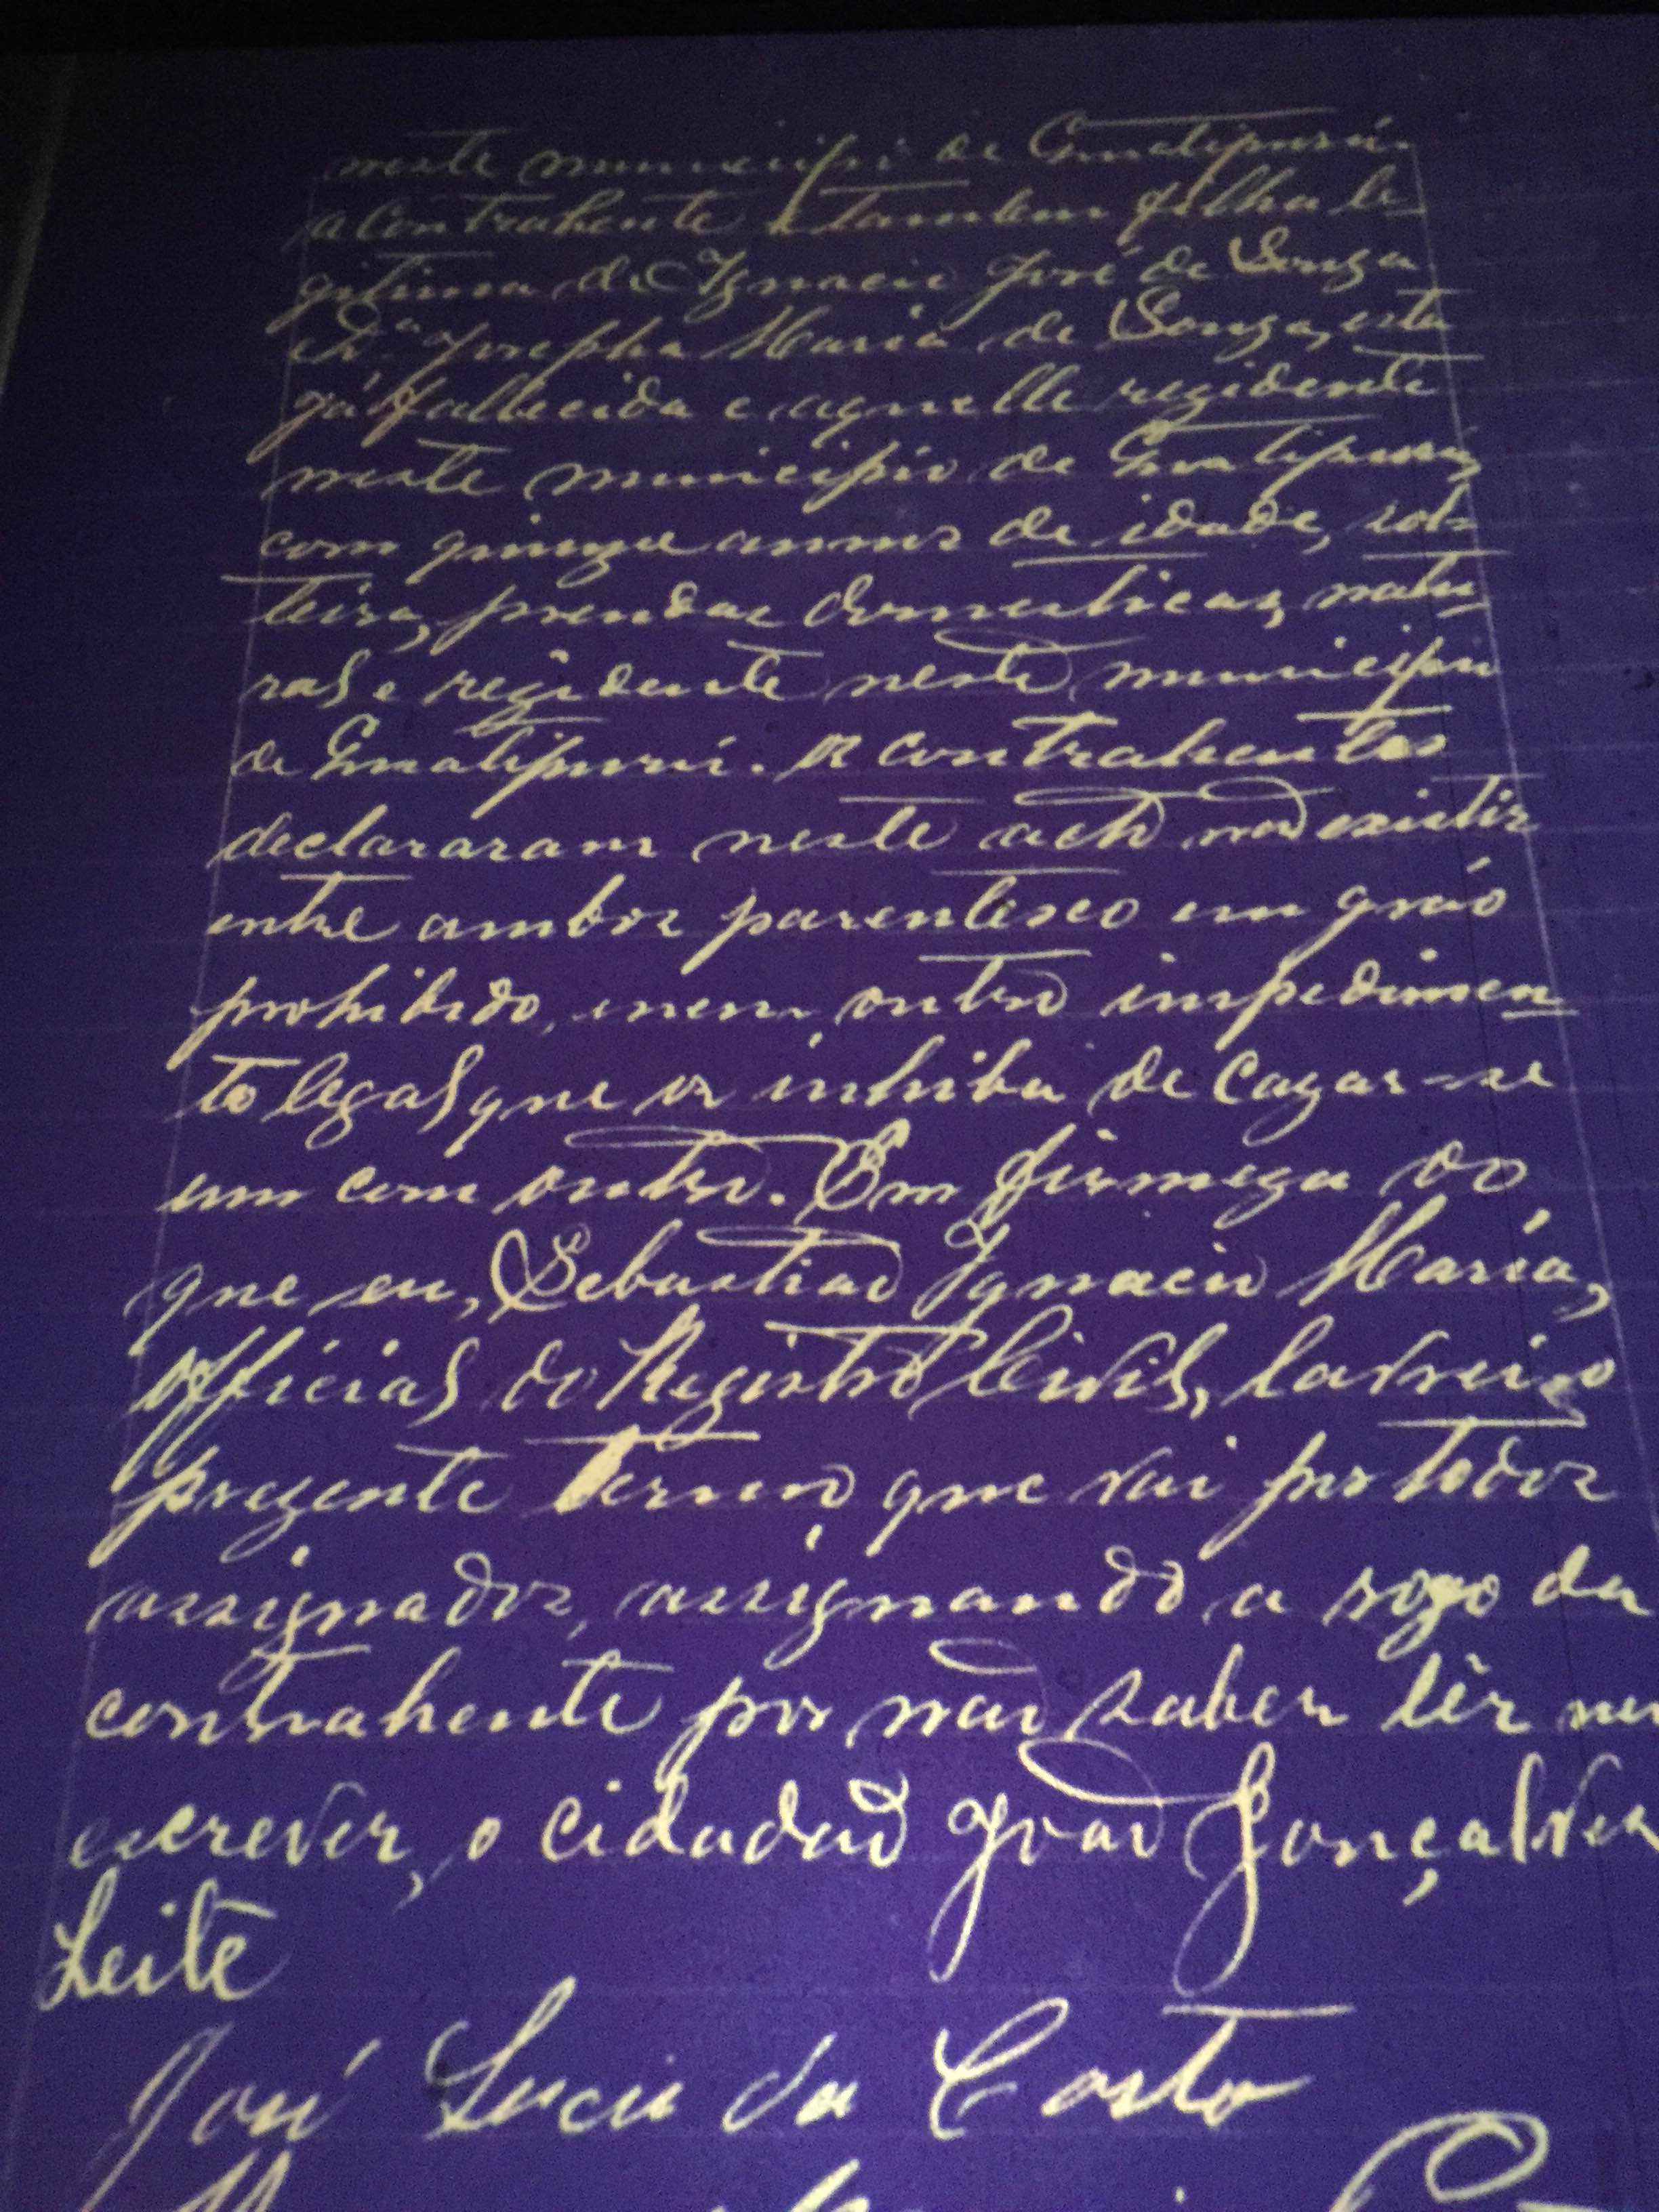 neste municipio de Quatipurú.
a contrahente é tambem filha le-
gitima de Ignacio José de Souza
e D.ª Josepha Maria de Souza, esta
já fallecida e aquelle rezidente
neste municipio de Quatipurú,
com quinze annos de idade, sol-
teira, prendas domesticas, natu-
ral e rezidente neste municipio
de Quatipurú. Os contrahentes
declararam neste acto não existir
entre ambos parentesco em gráo
prohibido, nem outro impedimen-
to legal que os inhiba de cazar-se
um com outro. Em firmeza do
que eu, Sebastião Ignacio Maria,
official do Registro Civil, lavrei o
prezente termo que vai por todos
assignados, assignando a rogo da
contrahente por não saber lêr nem
escrever, o cidadão João Gonçalves
Leite
José Lucio da Costa